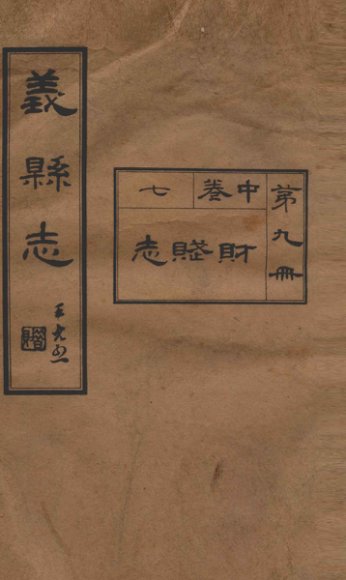 義縣志
王光烈
第九冊
中卷
七
財賦志